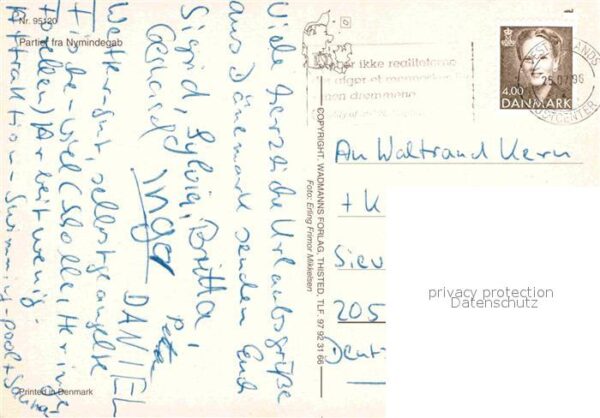 Nr. 95120
Parti fra Nymindegab
Viele herzliche Urlaubsgrüße
aus Dänemark senden Euch
Sigrid, Sylvia, Britta,
Gerhard, Inga, Peter
DANIEL
Wetter - gut, selbstgeangelte
Fische - viel (Scholle, Hering,
Forellen) Arbeit wenig.
Attraktion - Swimming-pool + Sauna
Printed in Denmark
COPYRIGHT: WADMANNS FORLAG, THISTED, TLF. 97 92 31 66
Foto: Erling Frimor Mikkelsen
er ikke realiteterne
afgør et menneskes
men drømmene
4.00
DANMARK
25.07.96
An Waltraud Kern
+ K
Siev
205
Deut
privacy protection
Datenschutz